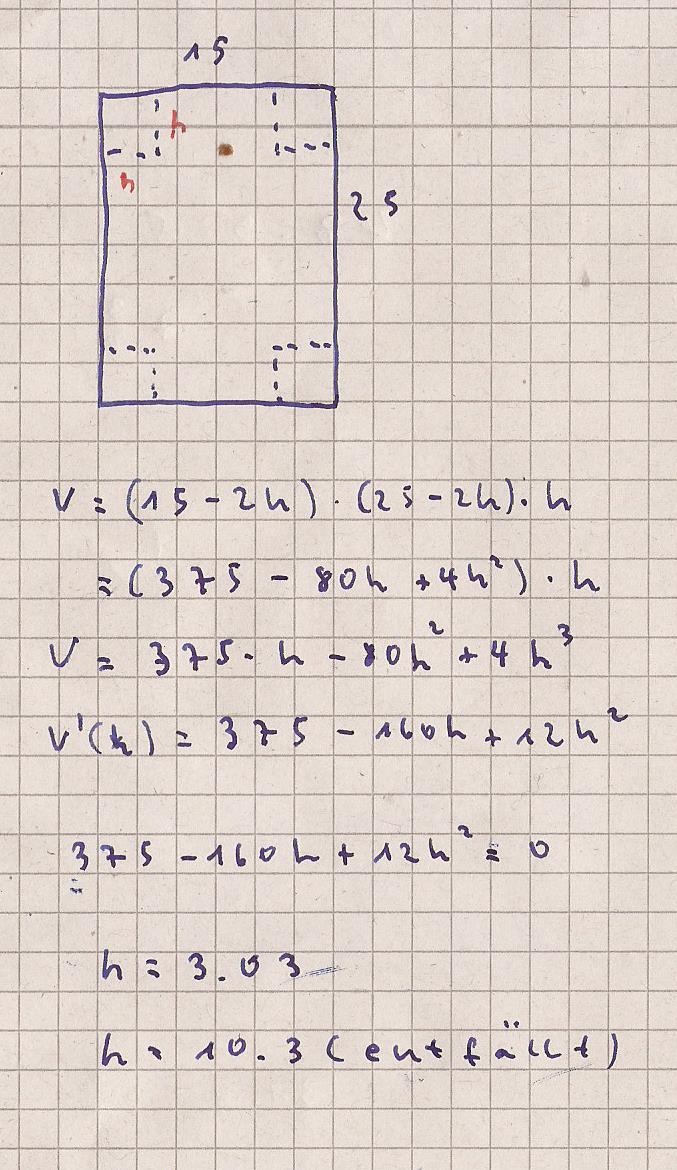 15
h
h
25
V = (15 - 2h) · (25 - 2h) · h
= (375 - 80h + 4h²) · h
V = 375 · h - 80h² + 4h³
V'(h) = 375 - 160h + 12h²
375 - 160h + 12h² = 0
=
h = 3.03
h = 10.3 (entfällt)